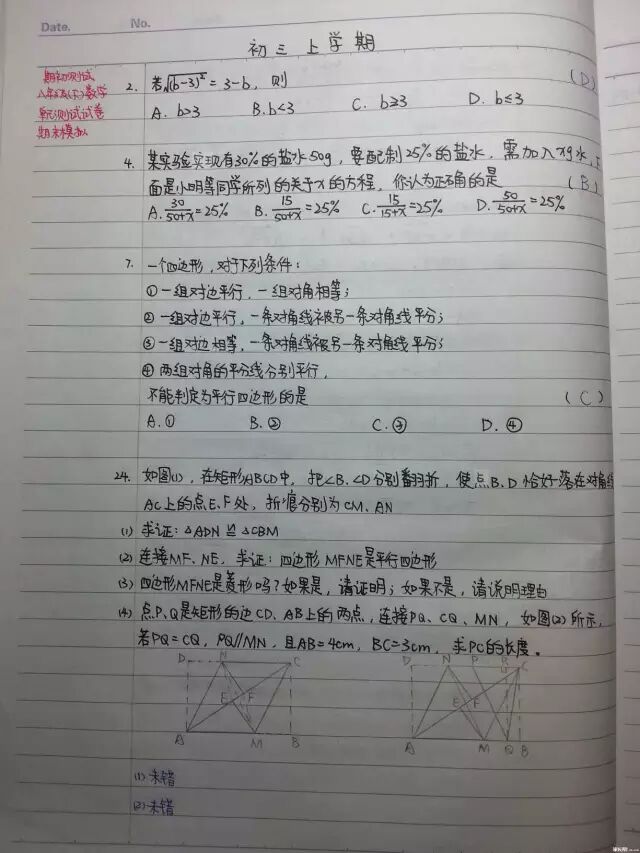 Date.
No.
初三上学期
期初测试
八年级(下)数学
单元测试试卷
期末模拟
2. 若√(b-3)² = 3-b, 则 (D)
A. b>3 B. b<3 C. b≥3 D. b≤3
4. 某实验室现有30%的盐水50g, 要配制25%的盐水, 需加入xg水, 下
面是小明等同学所列的关于x的方程, 你认为正确的是 (B)
A. 30/50+x = 25% B. 15/50+x = 25% C. 15/15+x = 25% D. 50/50+x = 25%
7. 一个四边形, 对于下列条件:
① 一组对边平行, 一组对角相等;
② 一组对边平行, 一条对角线被另一条对角线平分;
③ 一组对边相等, 一条对角线被另一条对角线平分;
④ 两组对角的平分线分别平行,
不能判定为平行四边形的是 (C)
A. ① B. ② C. ③ D. ④
24. 如图(1), 在矩形ABCD中, 把∠B、∠D分别翻折, 使点B、D恰好落在对角线
AC上的点E、F处, 折痕分别为CM、AN
(1) 求证: △ADN ≌ △CBM
(2) 连接MF、NE, 求证: 四边形MFNE是平行四边形
(3) 四边形MFNE是菱形吗? 如果是, 请证明; 如果不是, 请说明理由
(4) 点P、Q是矩形的边CD、AB上的两点, 连接PQ、CQ、MN, 如图(2)所示,
若PQ=CQ, PQ//MN, 且AB=4cm, BC=3cm, 求PC的长度。
D N C
E F
A M B
D N P R C
E F
A M Q B
(1) 未错
(2) 未错